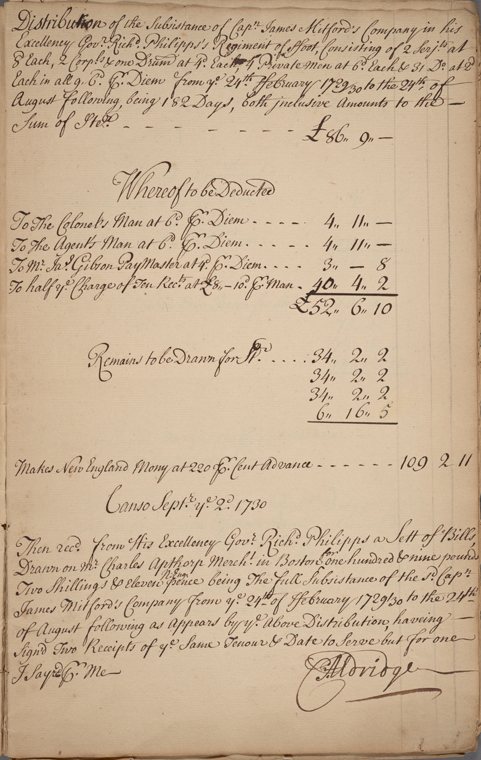 Distribution of the Subsistance of Capt. James Mitford's Company in his
Excellency Govr. Richd. Philipps's Regiment of ffoot, Consisting of 2 Serjts at
Each, 2 Corpls & one Drum at 4d. Each, 4 Private Men at 6d. Each & 31 Do. at
Each in all 9. 6. Pr. Diem from ye. 24th. of ffebruary 1729/30 to the 24th. of
August following, being 182 Days, both inclusive Amounts to the —
Sum of Ster. - - - - - - £86,, 9,, —
Whereof to be Deducted
To The Colonel's Man at 6d. Pr. Diem . . . . 4,, 11,, —
To the Agent's Man at 6d. Pr. Diem . . . . 4,, 11,, —
To Mr. Jas. Gibson PayMaster at 4d. Pr. Diem . . . . 3,, — 8
To half ye. Charge of Ten Rects. at £8,, – 10. Pr. Man . 40,, 4,, 2
£52,, 6,, 10
Remains to be Drawn for St. . . . . 34,, 2,, 2
34,, 2,, 2
34,, 2,, 2
6,, 16,, 5
Makes New England Mony at 220 Pr. Cent Advance - - - - - - 109 2 11
Canso Septr. ye. 2d. 1730
Then recd. from His Excellency Govr. Richd. Philipps a Sett of Bills,
Drawn on Mr. Charles Apthorp Mercht. in Boston for one hundred & nine pounds
Two Shillings & Eleven pence being The full Subsistance of the sd. Capt.
James Mitford's Company from ye. 24th. of ffebruary 1729/30 to the 24th
of August following as Appears by ye. Above Distribution, haveing —
Signd Two Receipts of ye. Same Tenour & Date to Serve but for one
I Say recd. Pr. Me
CAldridge